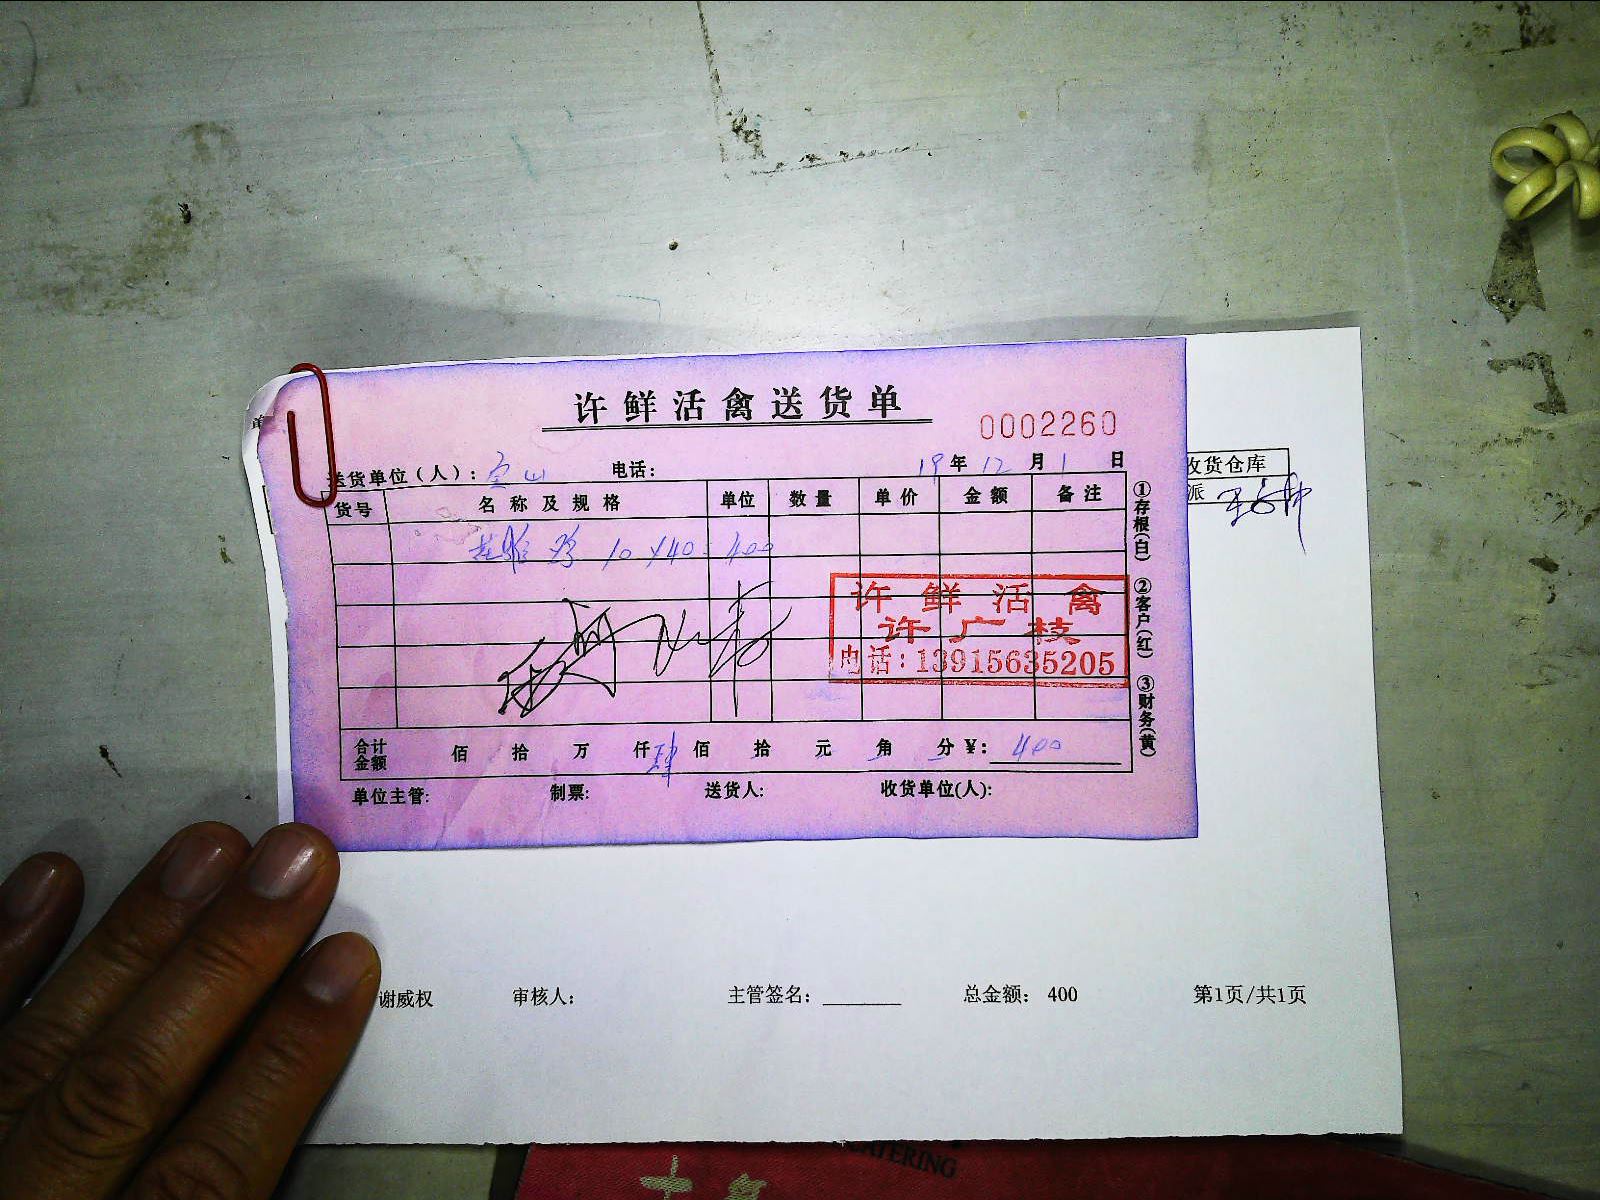 许鲜活禽送货单
0002260
送货单位(人): 宝山 电话: 19年12月1日
货号 名称及规格 单位 数量 单价 金额 备注
鸡 10 × 40 = 400
许鲜活禽
许广枝
电话:13915635205
合计金额 佰 拾 万 仟 肆 佰 拾 元 角 分 ¥: 400
单位主管: 制票: 送货人: 收货单位(人):
①存根(白) ②客户(红) ③财务(黄)
收货仓库
派
谢威权 审核人: 主管签名: 总金额: 400 第1页/共1页
CATERING